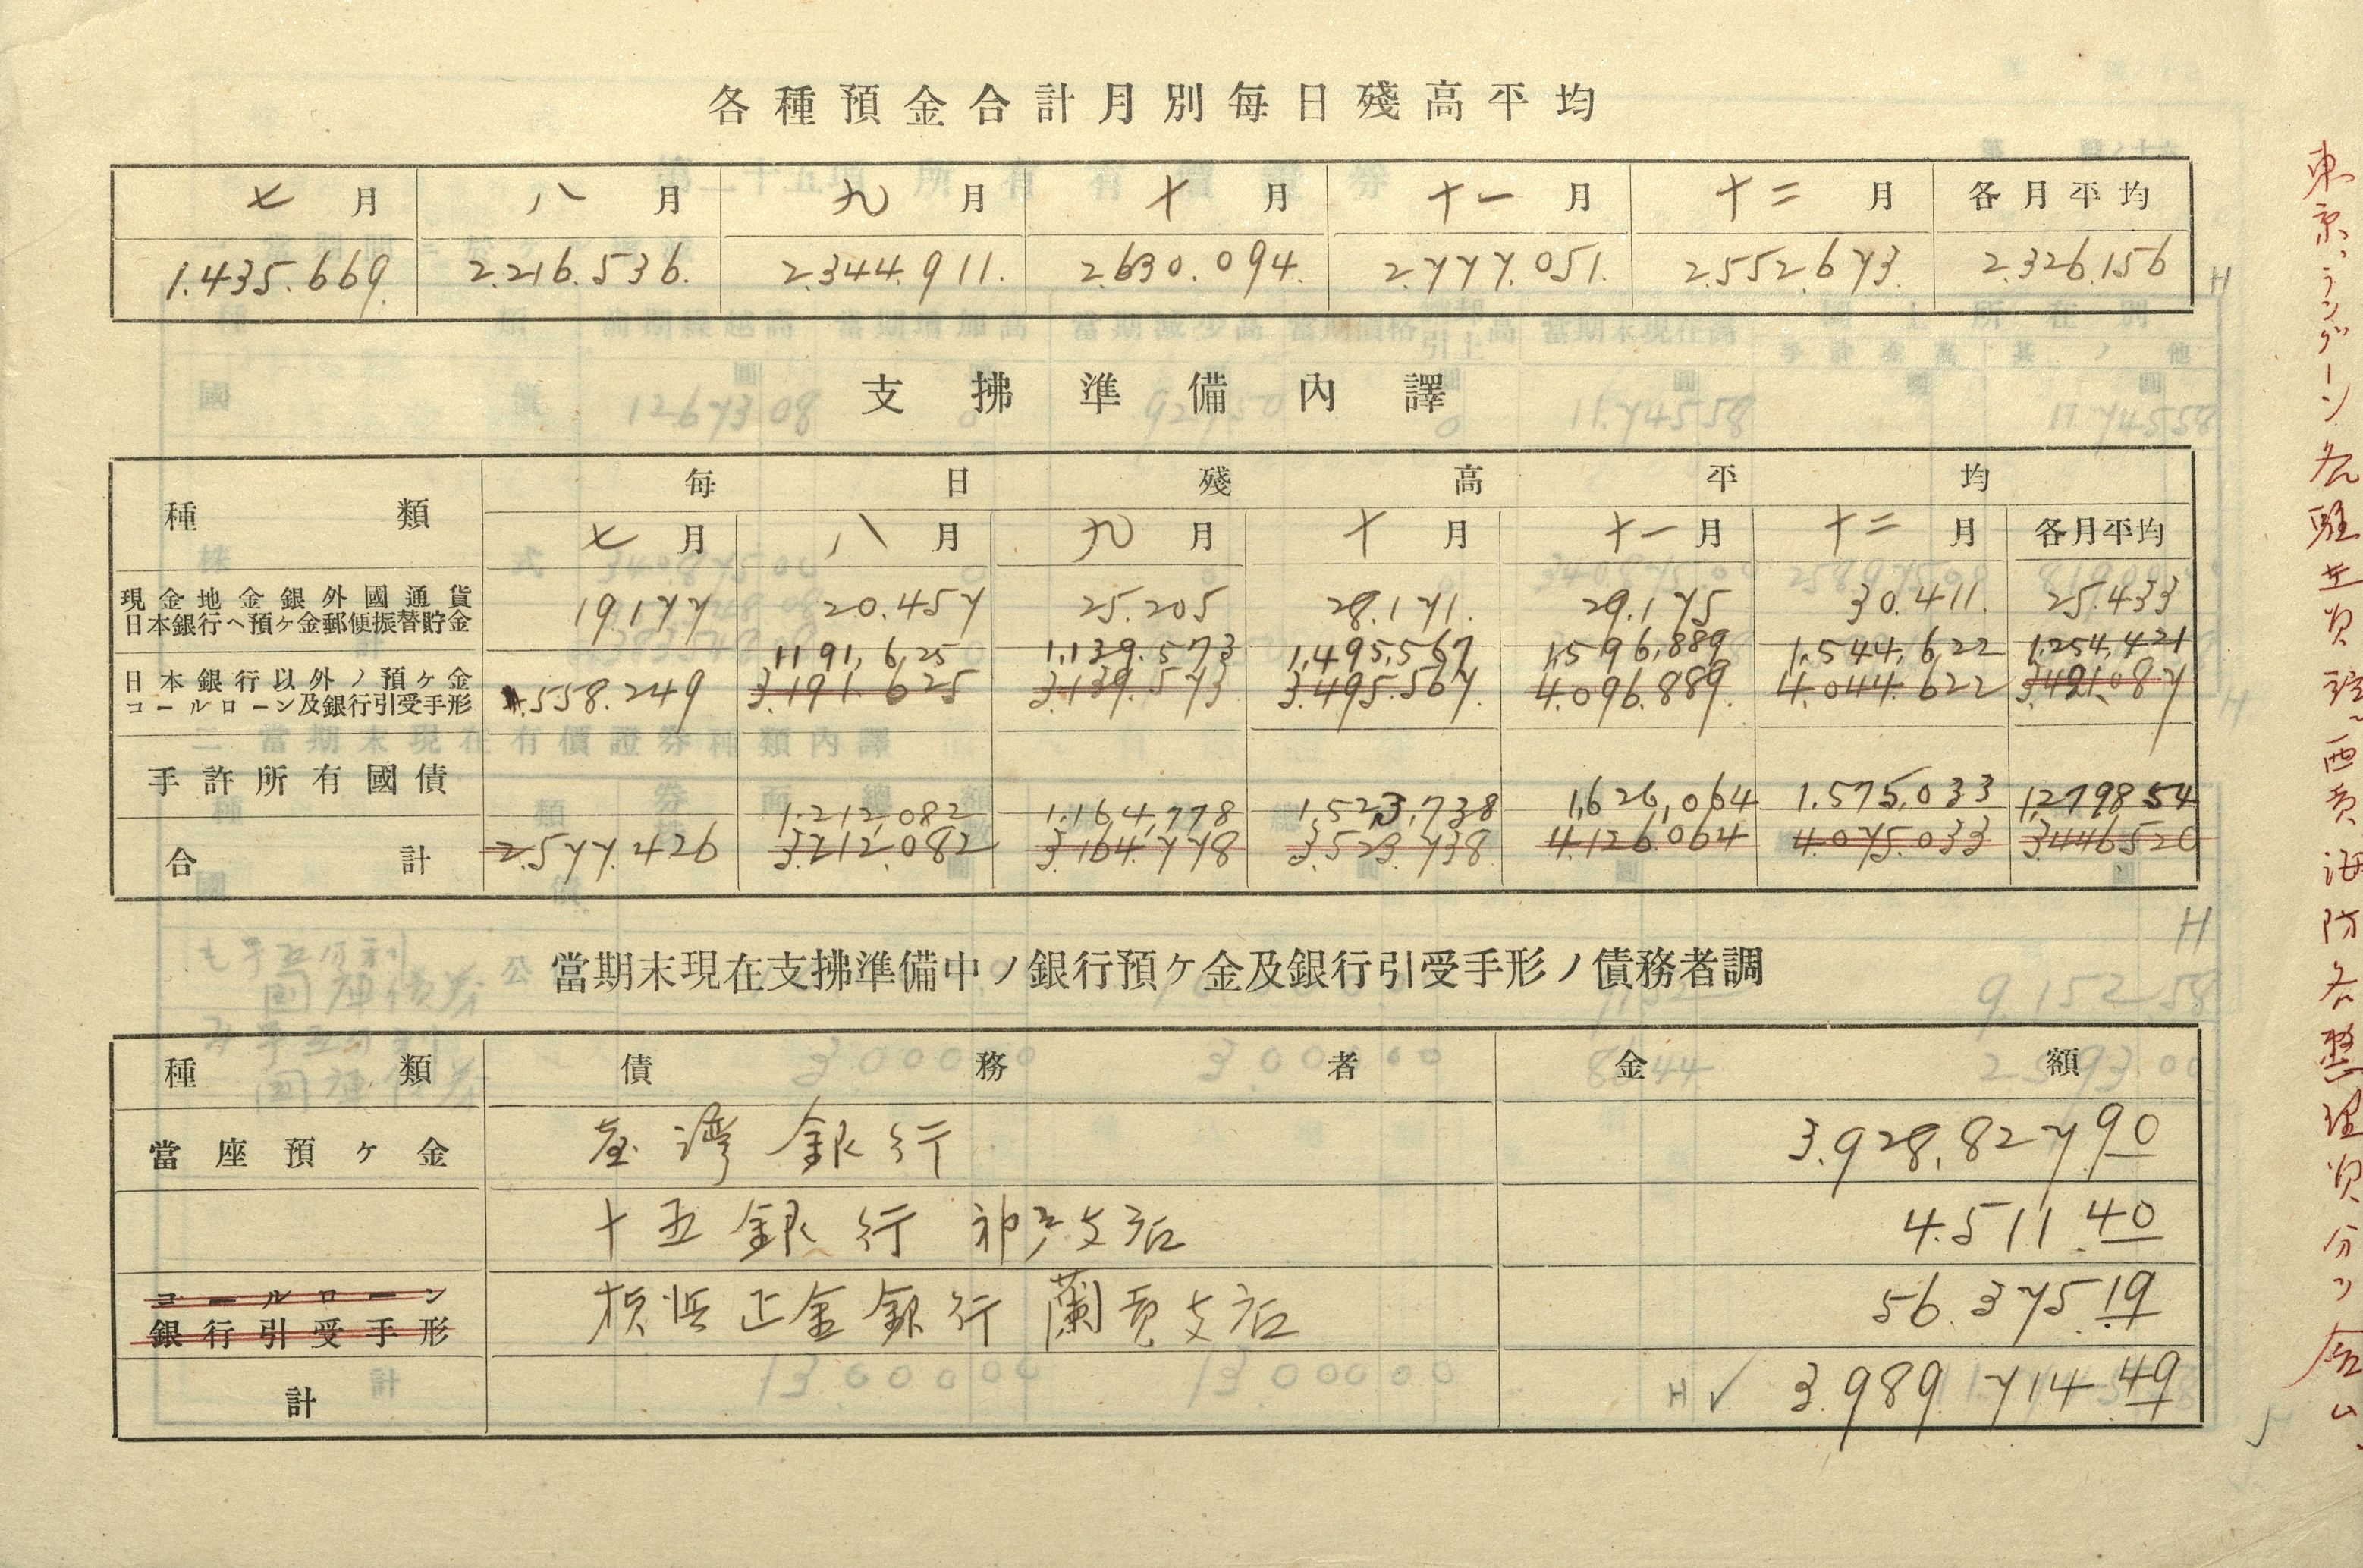 各種預金合計月別毎日殘高平均
七月 八月 九月 十月 十一月 十二月 各月平均
1.435.669. 2.216.536. 2.344.911. 2.630.094. 2.777.051. 2.552.673. 2.326.156 H
支拂準備內譯
種類 毎日殘高平均
七月 八月 九月 十月 十一月 十二月 各月平均
現金地金銀外國通貨
日本銀行ヘ預ケ金郵便振替貯金
19.177 20.457 25.205 28.171. 29.175 30.411. 25.433
1191,625 1.139.573 1,495,567 1,596,889 1,544,622 1,254,421
日本銀行以外ノ預ケ金
コールローン及銀行引受手形
558.249 3.191.625 3.139.573 3.495.567. 4.096.889. 4.044.622 3.421.087 H
手許所有國債
1.212,082 1.164,778 1,523,738 1,626,064 1.575,033 1,279854
合計 2.577.426 3.212.082 3.164.778 3.523.738. 4.126.064 4.075.033 3.446520
H
當期末現在支拂準備中ノ銀行預ケ金及銀行引受手形ノ債務者調
種類 債務者 金額
當座預ケ金 台湾銀行 3.928,827.90
十五銀行 神戸支店 4.511.40
コールローン
銀行引受手形
横浜正金銀行 蘭貢支店 56.375.19
計 H ✓ 3.989.714.49
東京、ラングーン各駐在員
西貢海防各整理員分ヲ含ム、